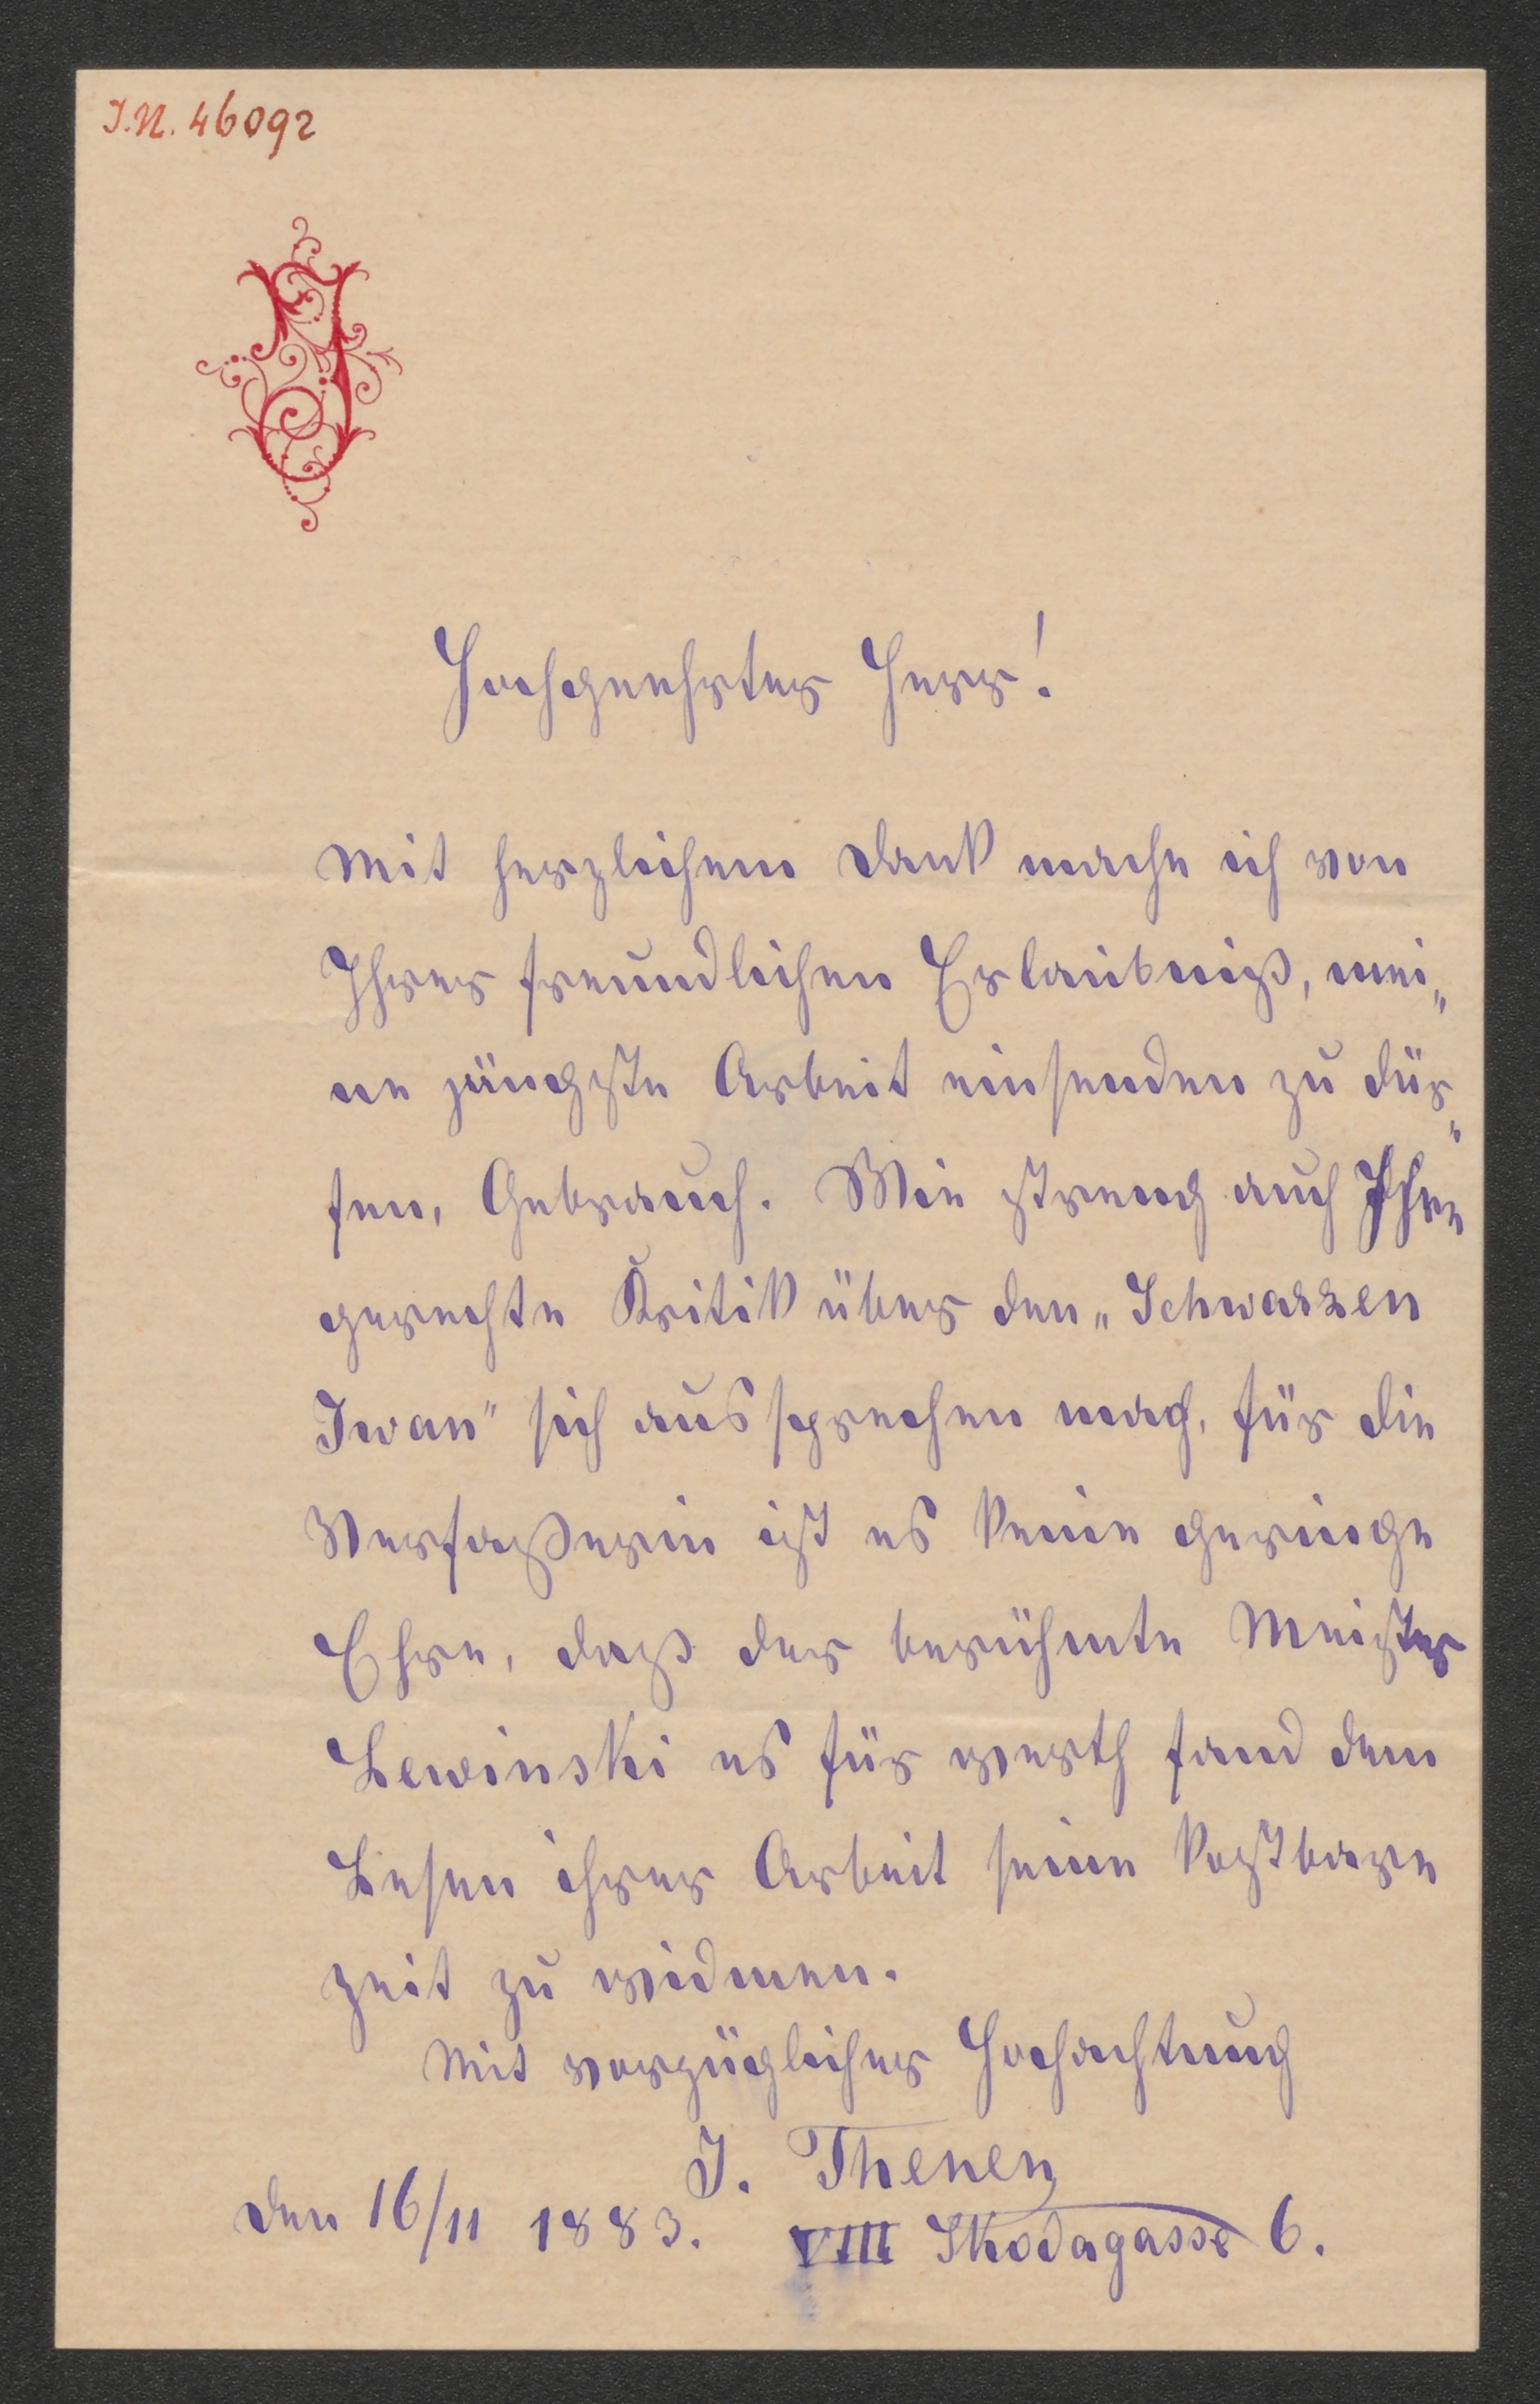 I.N. 46092
J
Hochgeehrter Herr!
Mit herzlichem Dank mache ich von
Ihrer freundlichen Erlaubniß, mei„
ne jüngste Arbeit einsenden zu dür„
fen, Gebrauch. Wie streng auch Ihre
gerechte Kritik über den „Schwarzen
Iwan" sich aussprechen mag, für die
Verfaßerin ist es keine geringe
Ehre, daß der berühmte Meister
Lewinski es für werth fand dem
Lesen ihrer Arbeit seine kostbare
Zeit zu widmen.
Mit vorzüglicher Hochachtung
J. Thenen
den 16/11 1883. VIII Skodagasse 6.